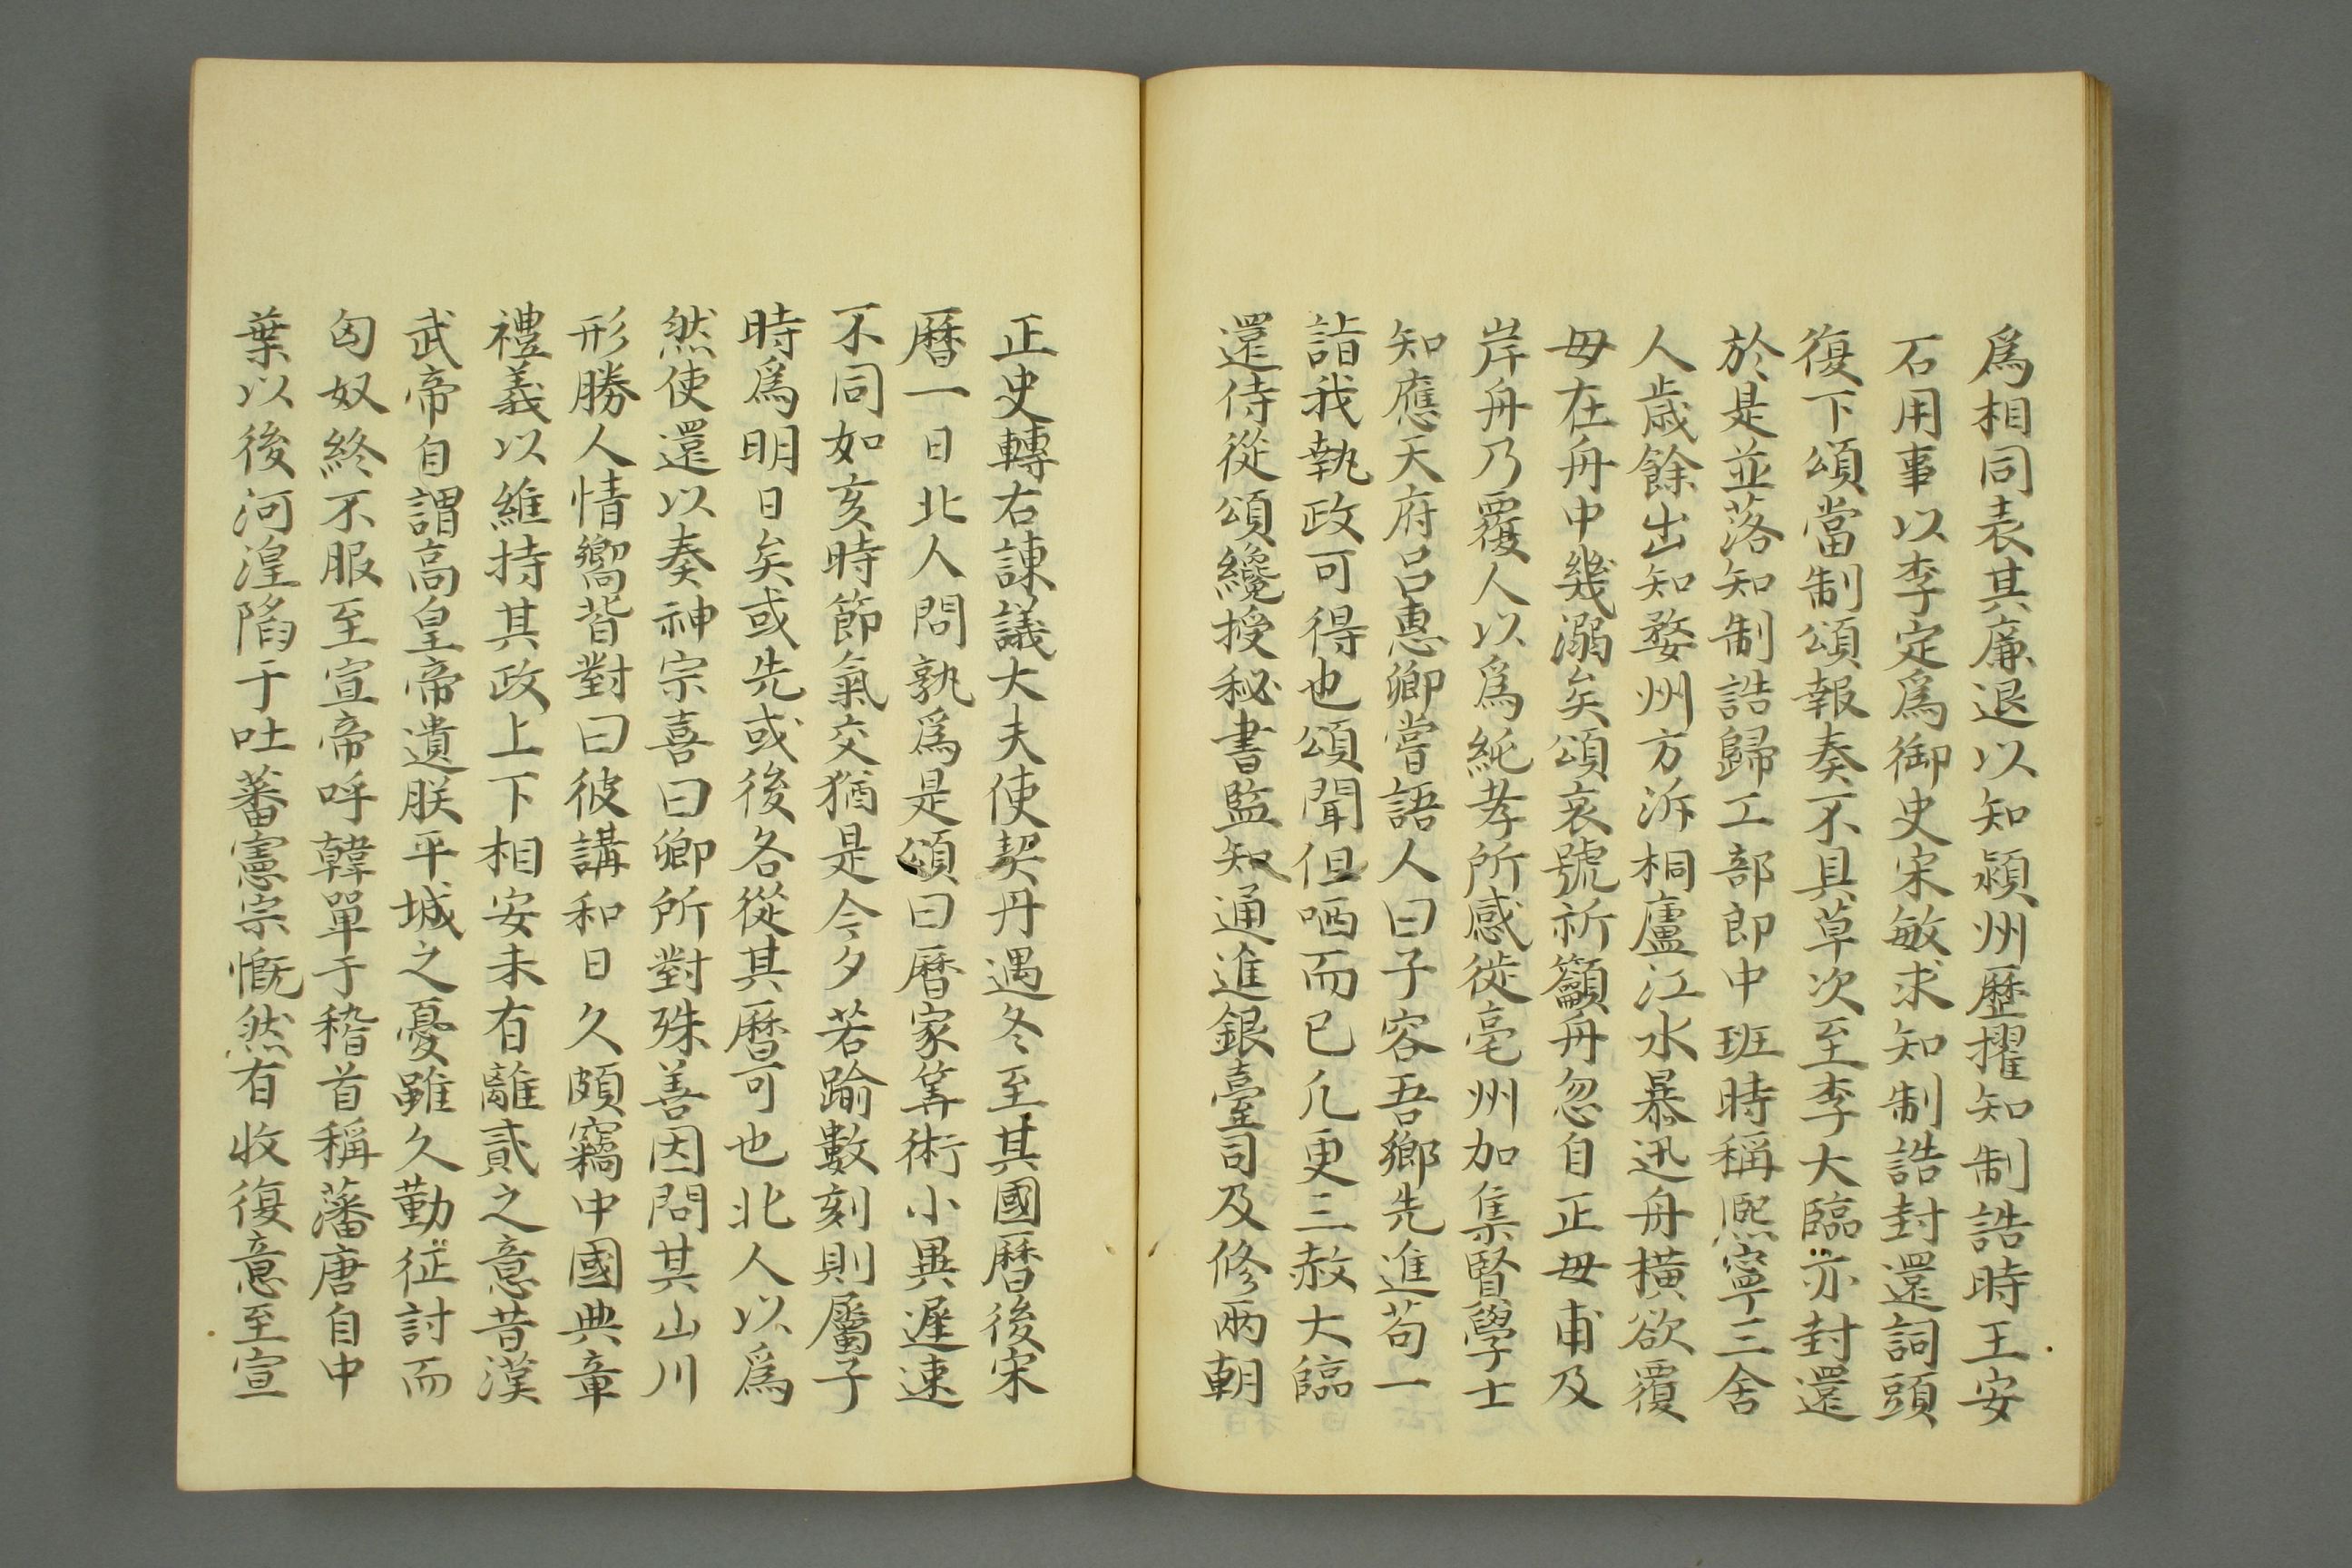 爲相同表其廉退以知潁州歷擢知制誥時王安
石用事以李定爲御史宋敏求知制誥封還詞頭
復下頌當制頌報奏不具草次至李大臨亦封還
於是並落知制誥歸工部郎中班時稱熙寧三舍
人歲餘出知婺州方泝桐廬江水暴迅舟橫欲覆
母在舟中幾溺矣頌哀號祈籲舟忽自正母甫及
岸舟乃覆人以爲純孝所感徙亳州加集賢學士
知應天府呂惠卿嘗語人曰子容吾鄉先進苟一
詣我執政可得也頌聞但哂而已凡更三赦大臨
還侍從頌纔授秘書監知通進銀臺司及修兩朝
正史轉右諫議大夫使契丹遇冬至其國曆後宋
曆一日北人問孰爲是頌曰曆家筭術小異遲速
不同如亥時節氣交猶是今夕若踰數刻則屬子
時爲明日矣或先或後各從其曆可也北人以爲
然使還以奏神宗喜曰卿所對殊善因問其山川
形勝人情嚮背對曰彼講和日久頗竊中國典章
禮義以維持其政上下相安未有離貳之意昔漢
武帝自謂高皇帝遺朕平城之憂雖久勤征討而
匈奴終不服至宣帝呼韓單于稽首稱藩唐自中
葉以後河湟陷于吐蕃憲宗慨然有收復意至宣